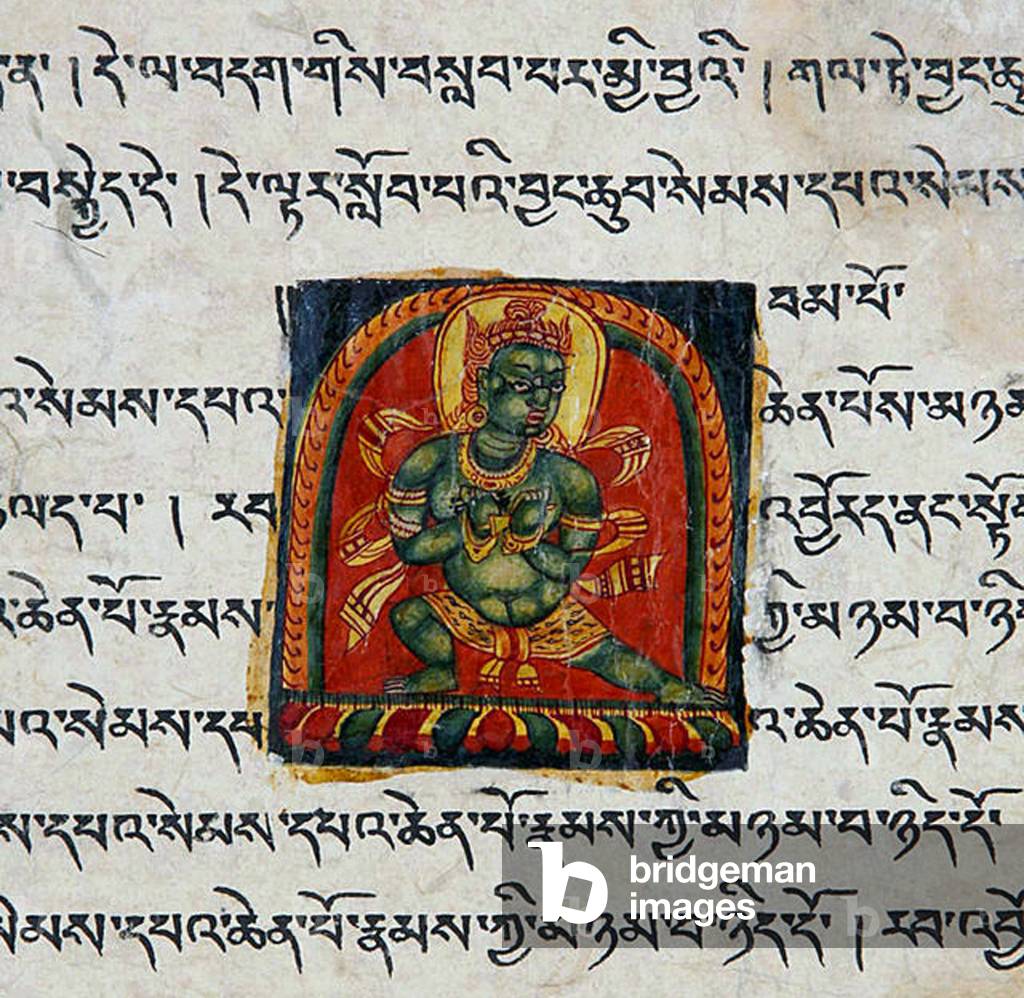 ན་ །དེ་ལ་བདག་གིས་བསླབ་པར་མྱི་བྱའི་ །གལ་ཏེ་བྱང་ཆུ
བསྐྱེད་དེ་ །དེ་ལྟར་སློབ་པའི་བྱང་ཆུབ་སེམས་དཔའ་སེམས
བམ་པོ་
འ་སེམས་དཔའ་ ཆེན་པོས་མཉམ
པ་ ། རབ འབྱོརད་ནང་སྟོན
ཆེན་པོ་རྣམས་ ཀྱི་མཉམ་བ་ཉི
པའ་སེམས་དཔ འ་ཆེན་པོ་རྣམས
ས་དཔའ་སེམས་དཔའ་ཆེན་པོ་རྣམས་ཀྱི་མཉམ་བ་ཉིད་དོ
སེམས་དཔའ་ཆེན་པོ་རྣམས་ཀྱི་མཉམ་བ་ཉིད་དོ་ །རབ་འབྱོ
bridgeman
images